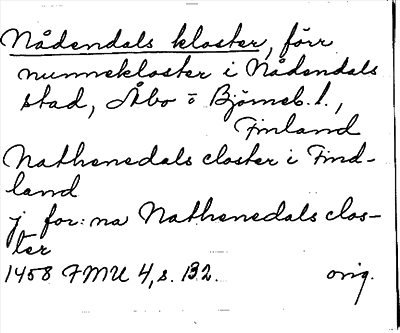 Nådendals kloster, förr
nunnekloster i Nådendals
stad, Åbo o Björneb. l.,
Finland
Nathenedals closter i Find-
land
j for:na Nathenedals clos-
ter
1458 FMU 4, s. 132. orig.